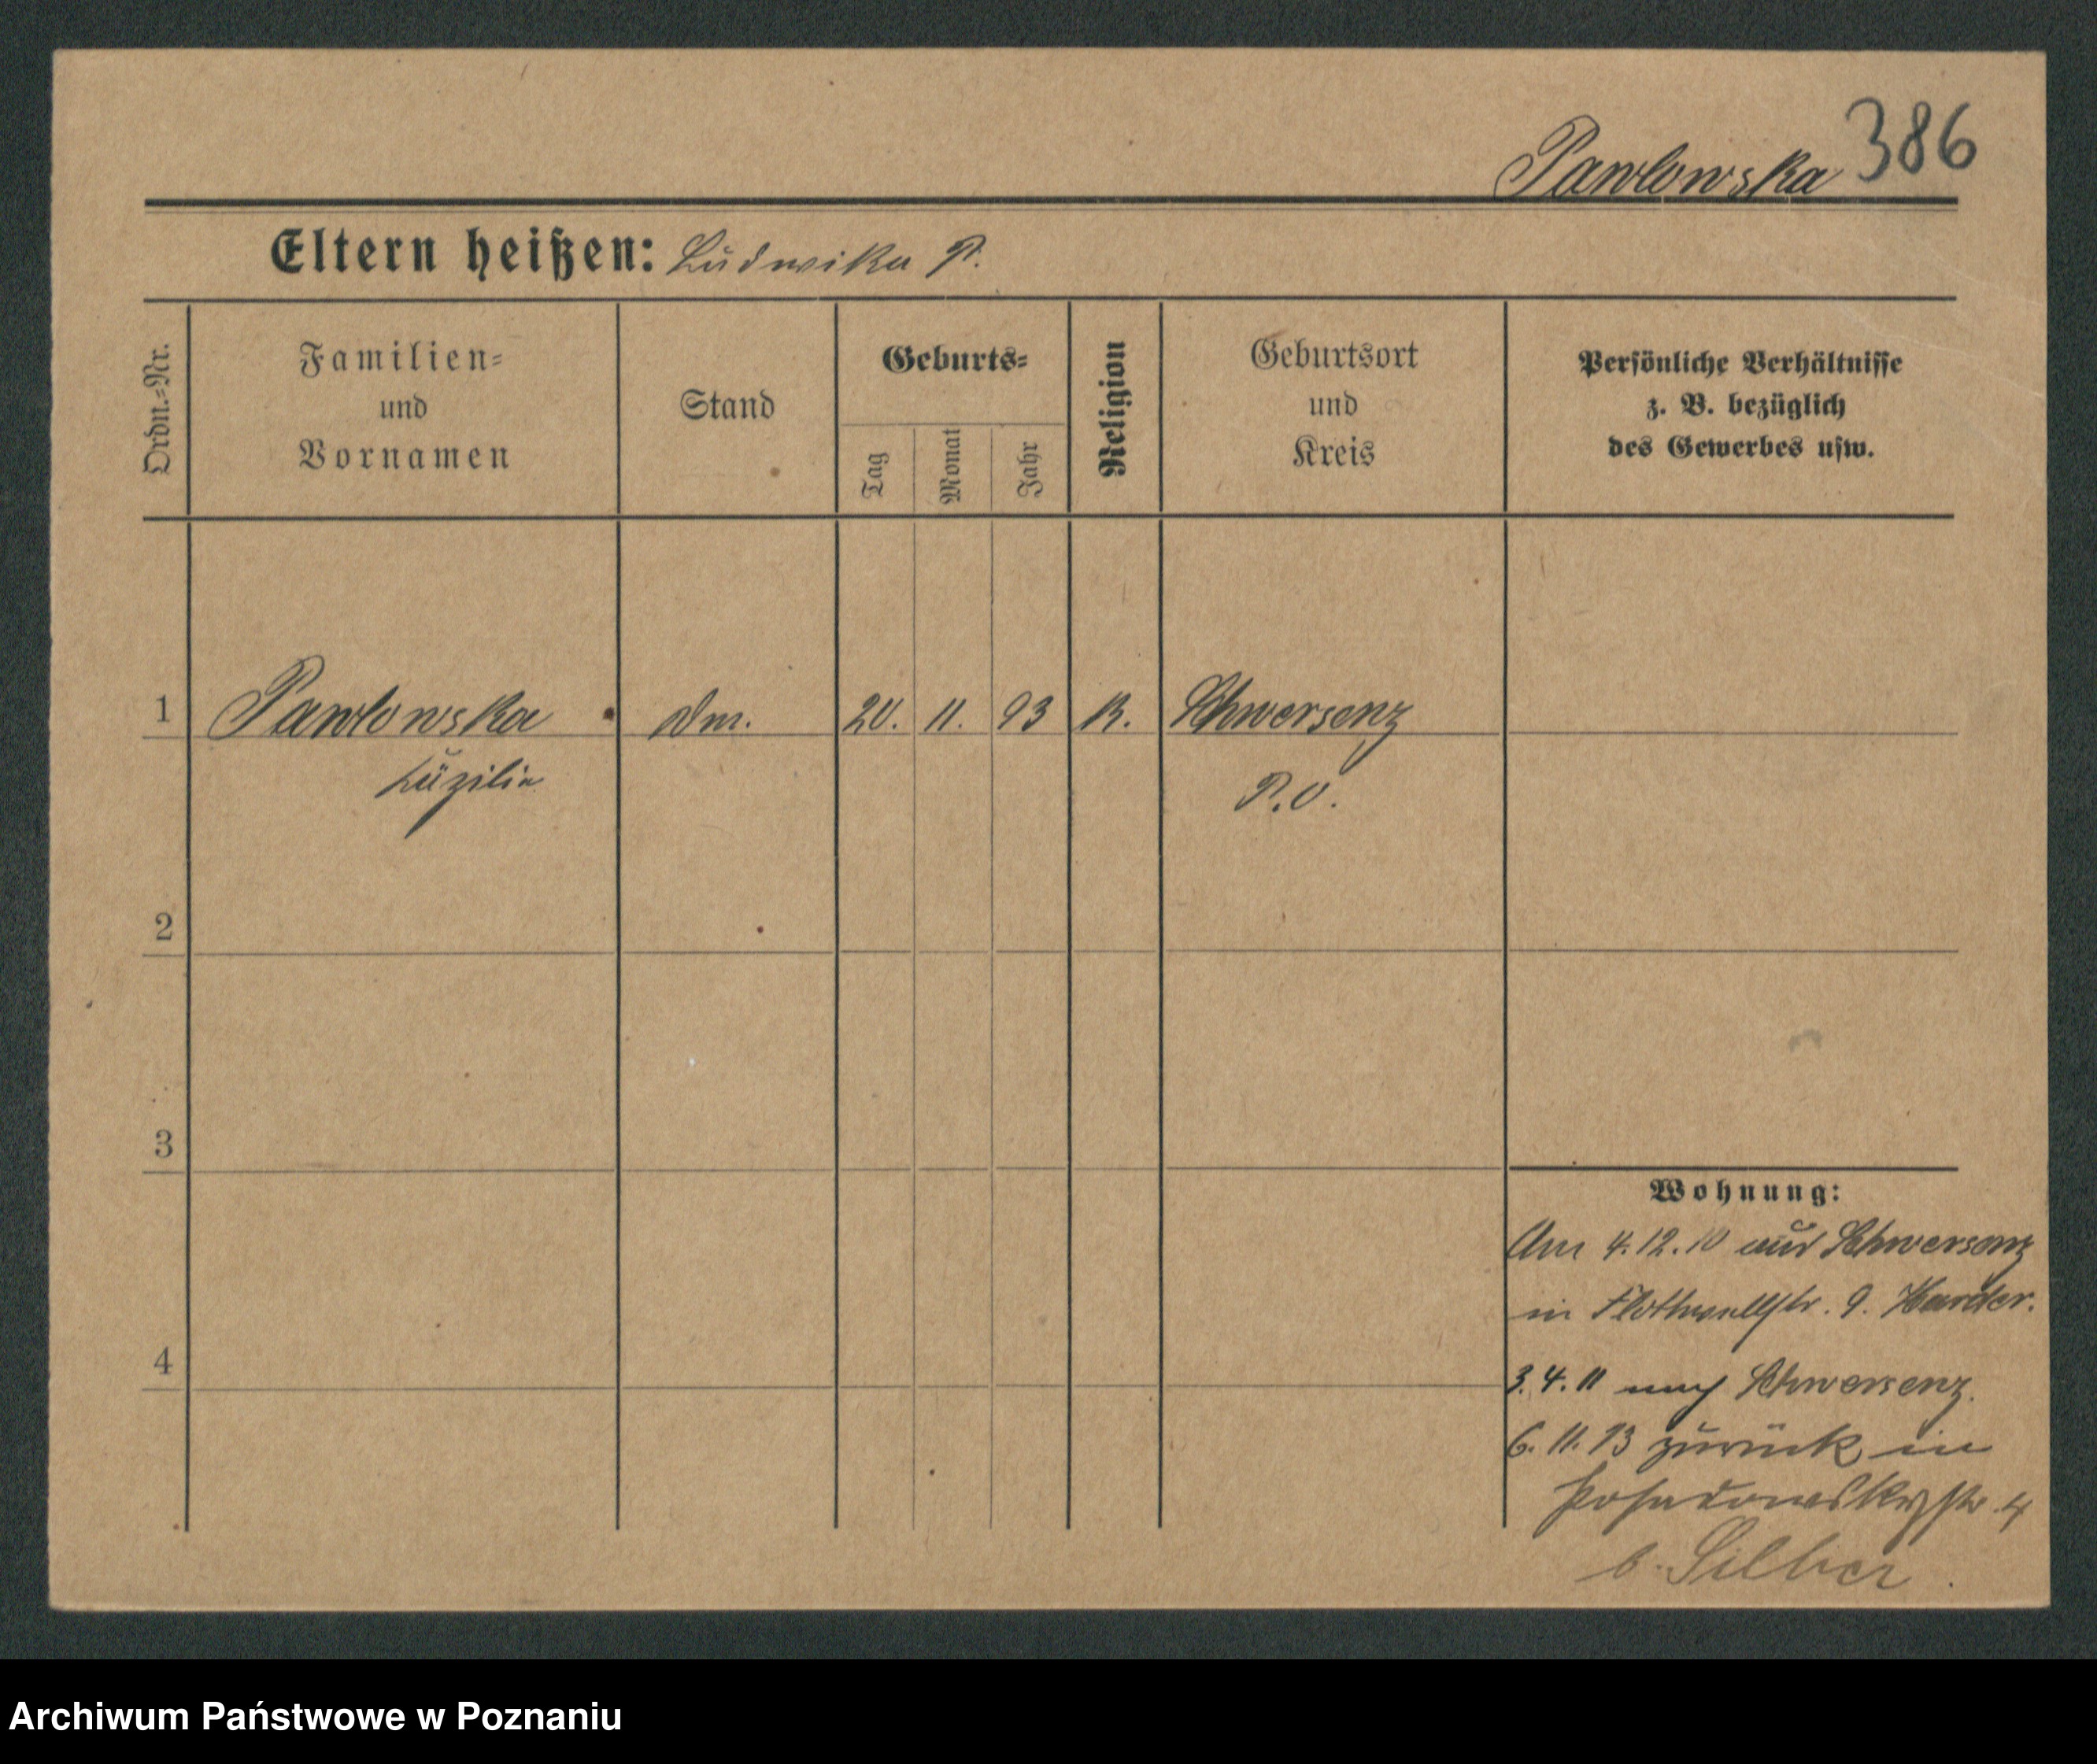 Pawlowska 386
Eltern heißen: Ludwika P.
Ordn.=Nr.
Familien=
und
Vornamen
Stand
Geburts=
Tag
Monat
Jahr
Religion
Geburtsort
und
Kreis
Persönliche Verhältnisse
z. B. bezüglich
des Gewerbes usw.
1 Pawlowska 20. 11. 93 K. Schwersenz
Luzilia P.O.
2
3
4
Wohnung:
Am 4.12.10 aus Schwersenz
in Flottwellstr. 9. Harder.
3.4.11 nach Schwersenz.
6.11.13 zurück in
Posadowskystr. 4
b. Silber.
Archiwum Państwowe w Poznaniu